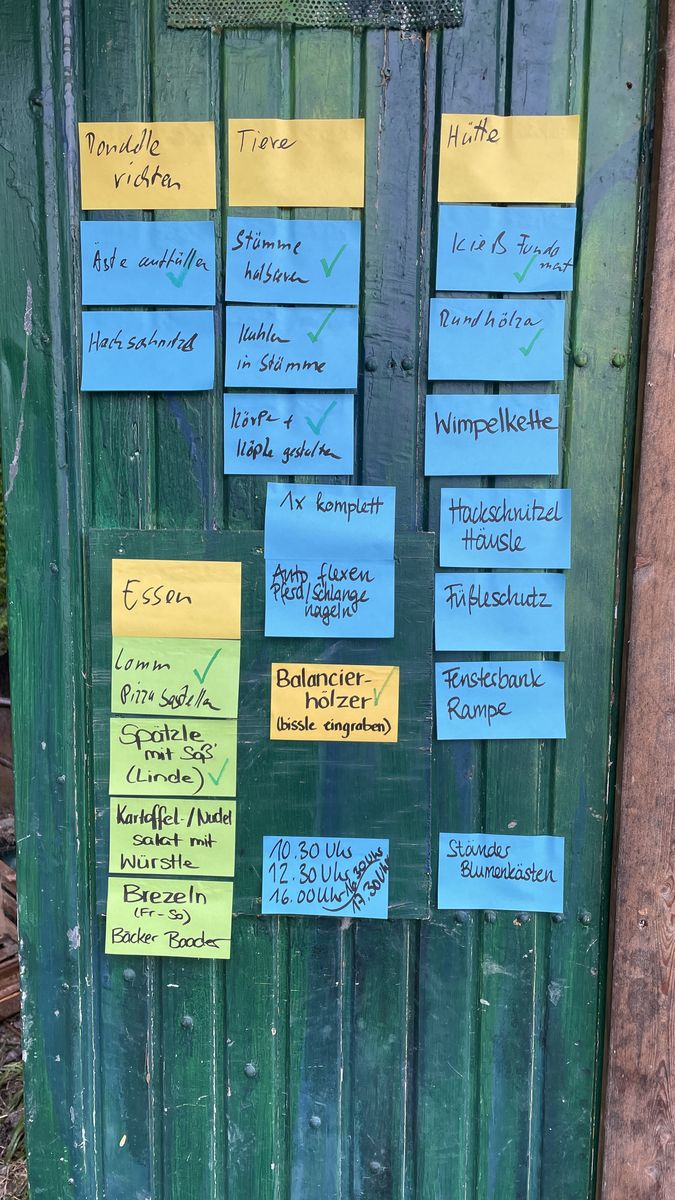 richten
Äste auffüllen
Hackschnitzel
Tiere
Stämme
halbieren
Kuhlen
in Stämme
Körper +
Köpfe gestalten
1x komplett
Auto flexen
Pferd/Schlange
nageln
Balancier-
hölzer
(bissle eingraben)
10.30 Uhr
12.30 Uhr
16.00 Uhr 16.30 Uhr
17.30 Uhr
Hütte
Kieß Funda
ment
Rundhölzer
Wimpelkette
Hackschnitzel
Häusle
Füßleschutz
Fensterbank
Rampe
Ständer
Blumenkästen
Essen
Pizza bestellen
Spätzle
mit Soß'
(Linde)
Kartoffel-/Nudel
salat mit
Würstle
Brezeln
(Fr-So)
Bäcker Baader